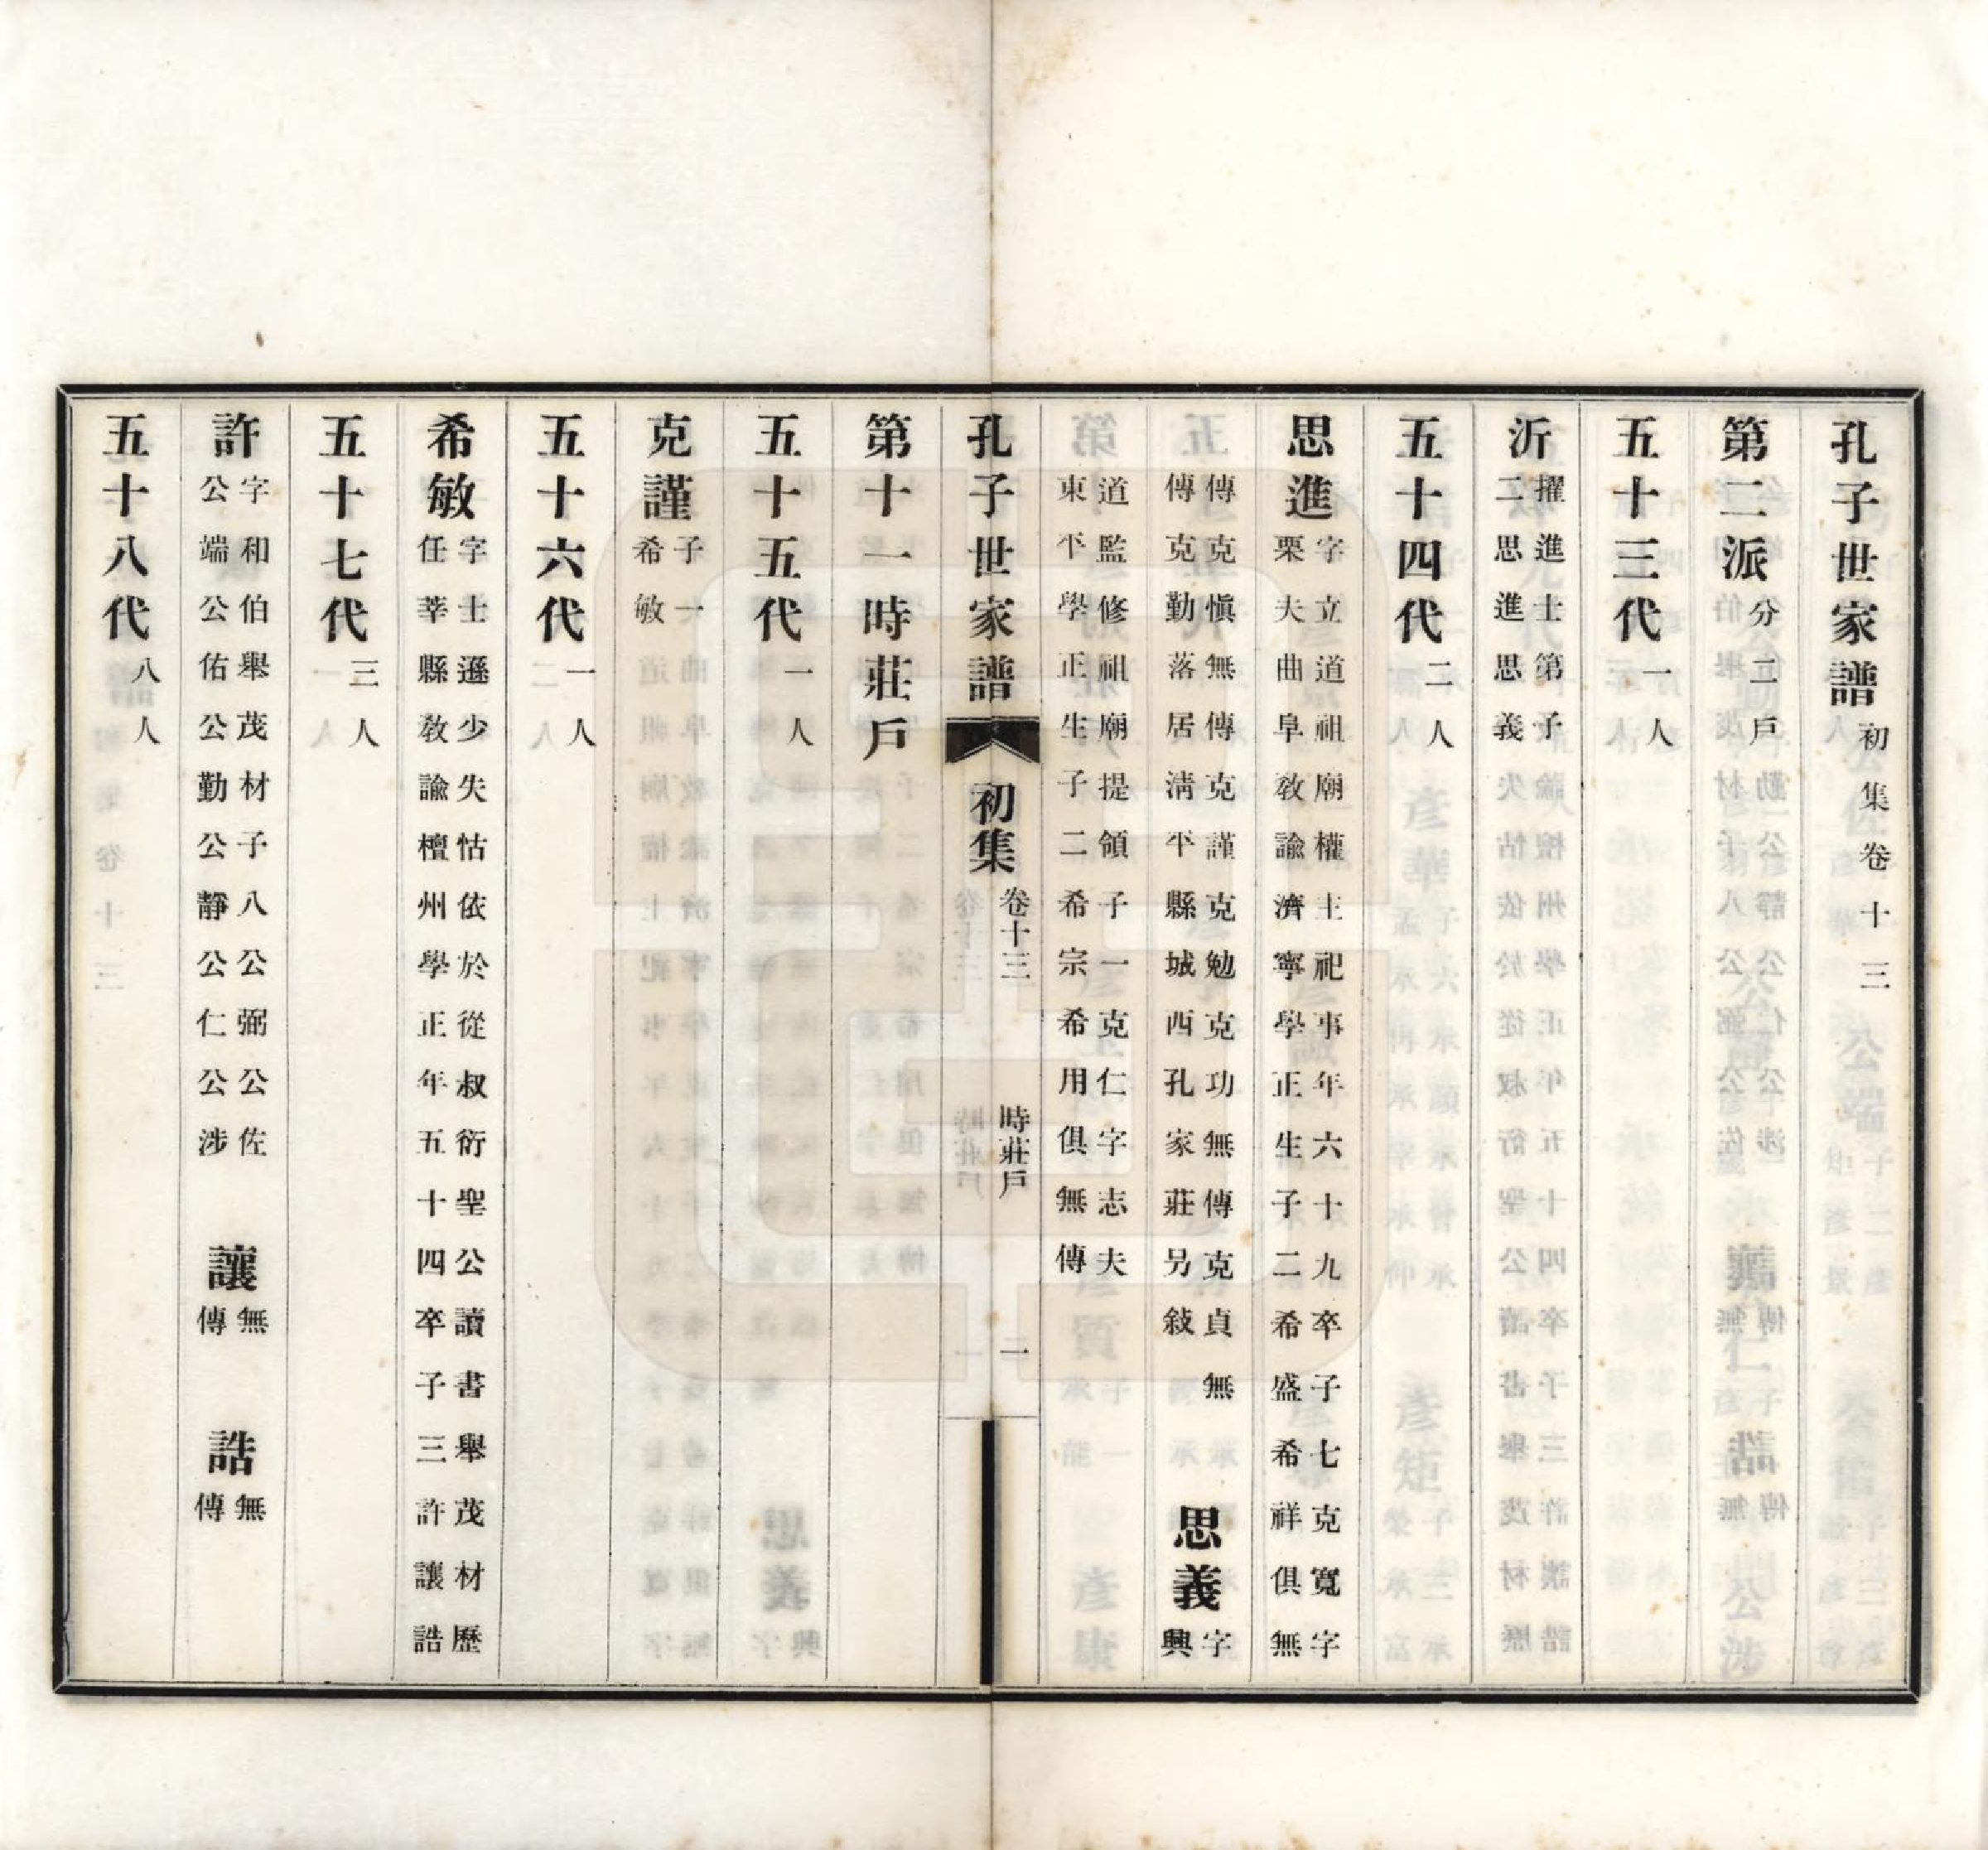 孔子世家譜初集卷十三
第二派分二戶
五十三代一人
沂擢進士第子二思進思義
五十四代二人
思進字立道祖廟權主祀事年六十九卒子七克寬字
栗夫曲阜敎諭濟寧學正生子二希盛希祥俱無
傳克愼無傳克謹克勉克功無傳克貞無
傳克勤落居淸平縣城西孔家莊另敍思義字
興
道監修祖廟提領子一克仁字志夫
東平學正生子二希宗希用俱無傳
孔子世家譜 初集 卷十三 時莊戶 一
第十一時莊戶
五十五代一人
克謹子一希敏
五十六代一人
希敏字士遜少失怙依於從叔衍聖公讀書舉茂材歷
任莘縣敎諭檀州學正年五十四卒子三許讓誥
五十七代三人
許字和伯舉茂材子八公弼公佐公端公佑公勤公靜公仁公涉 讓無傳 誥無傳
五十八代八人